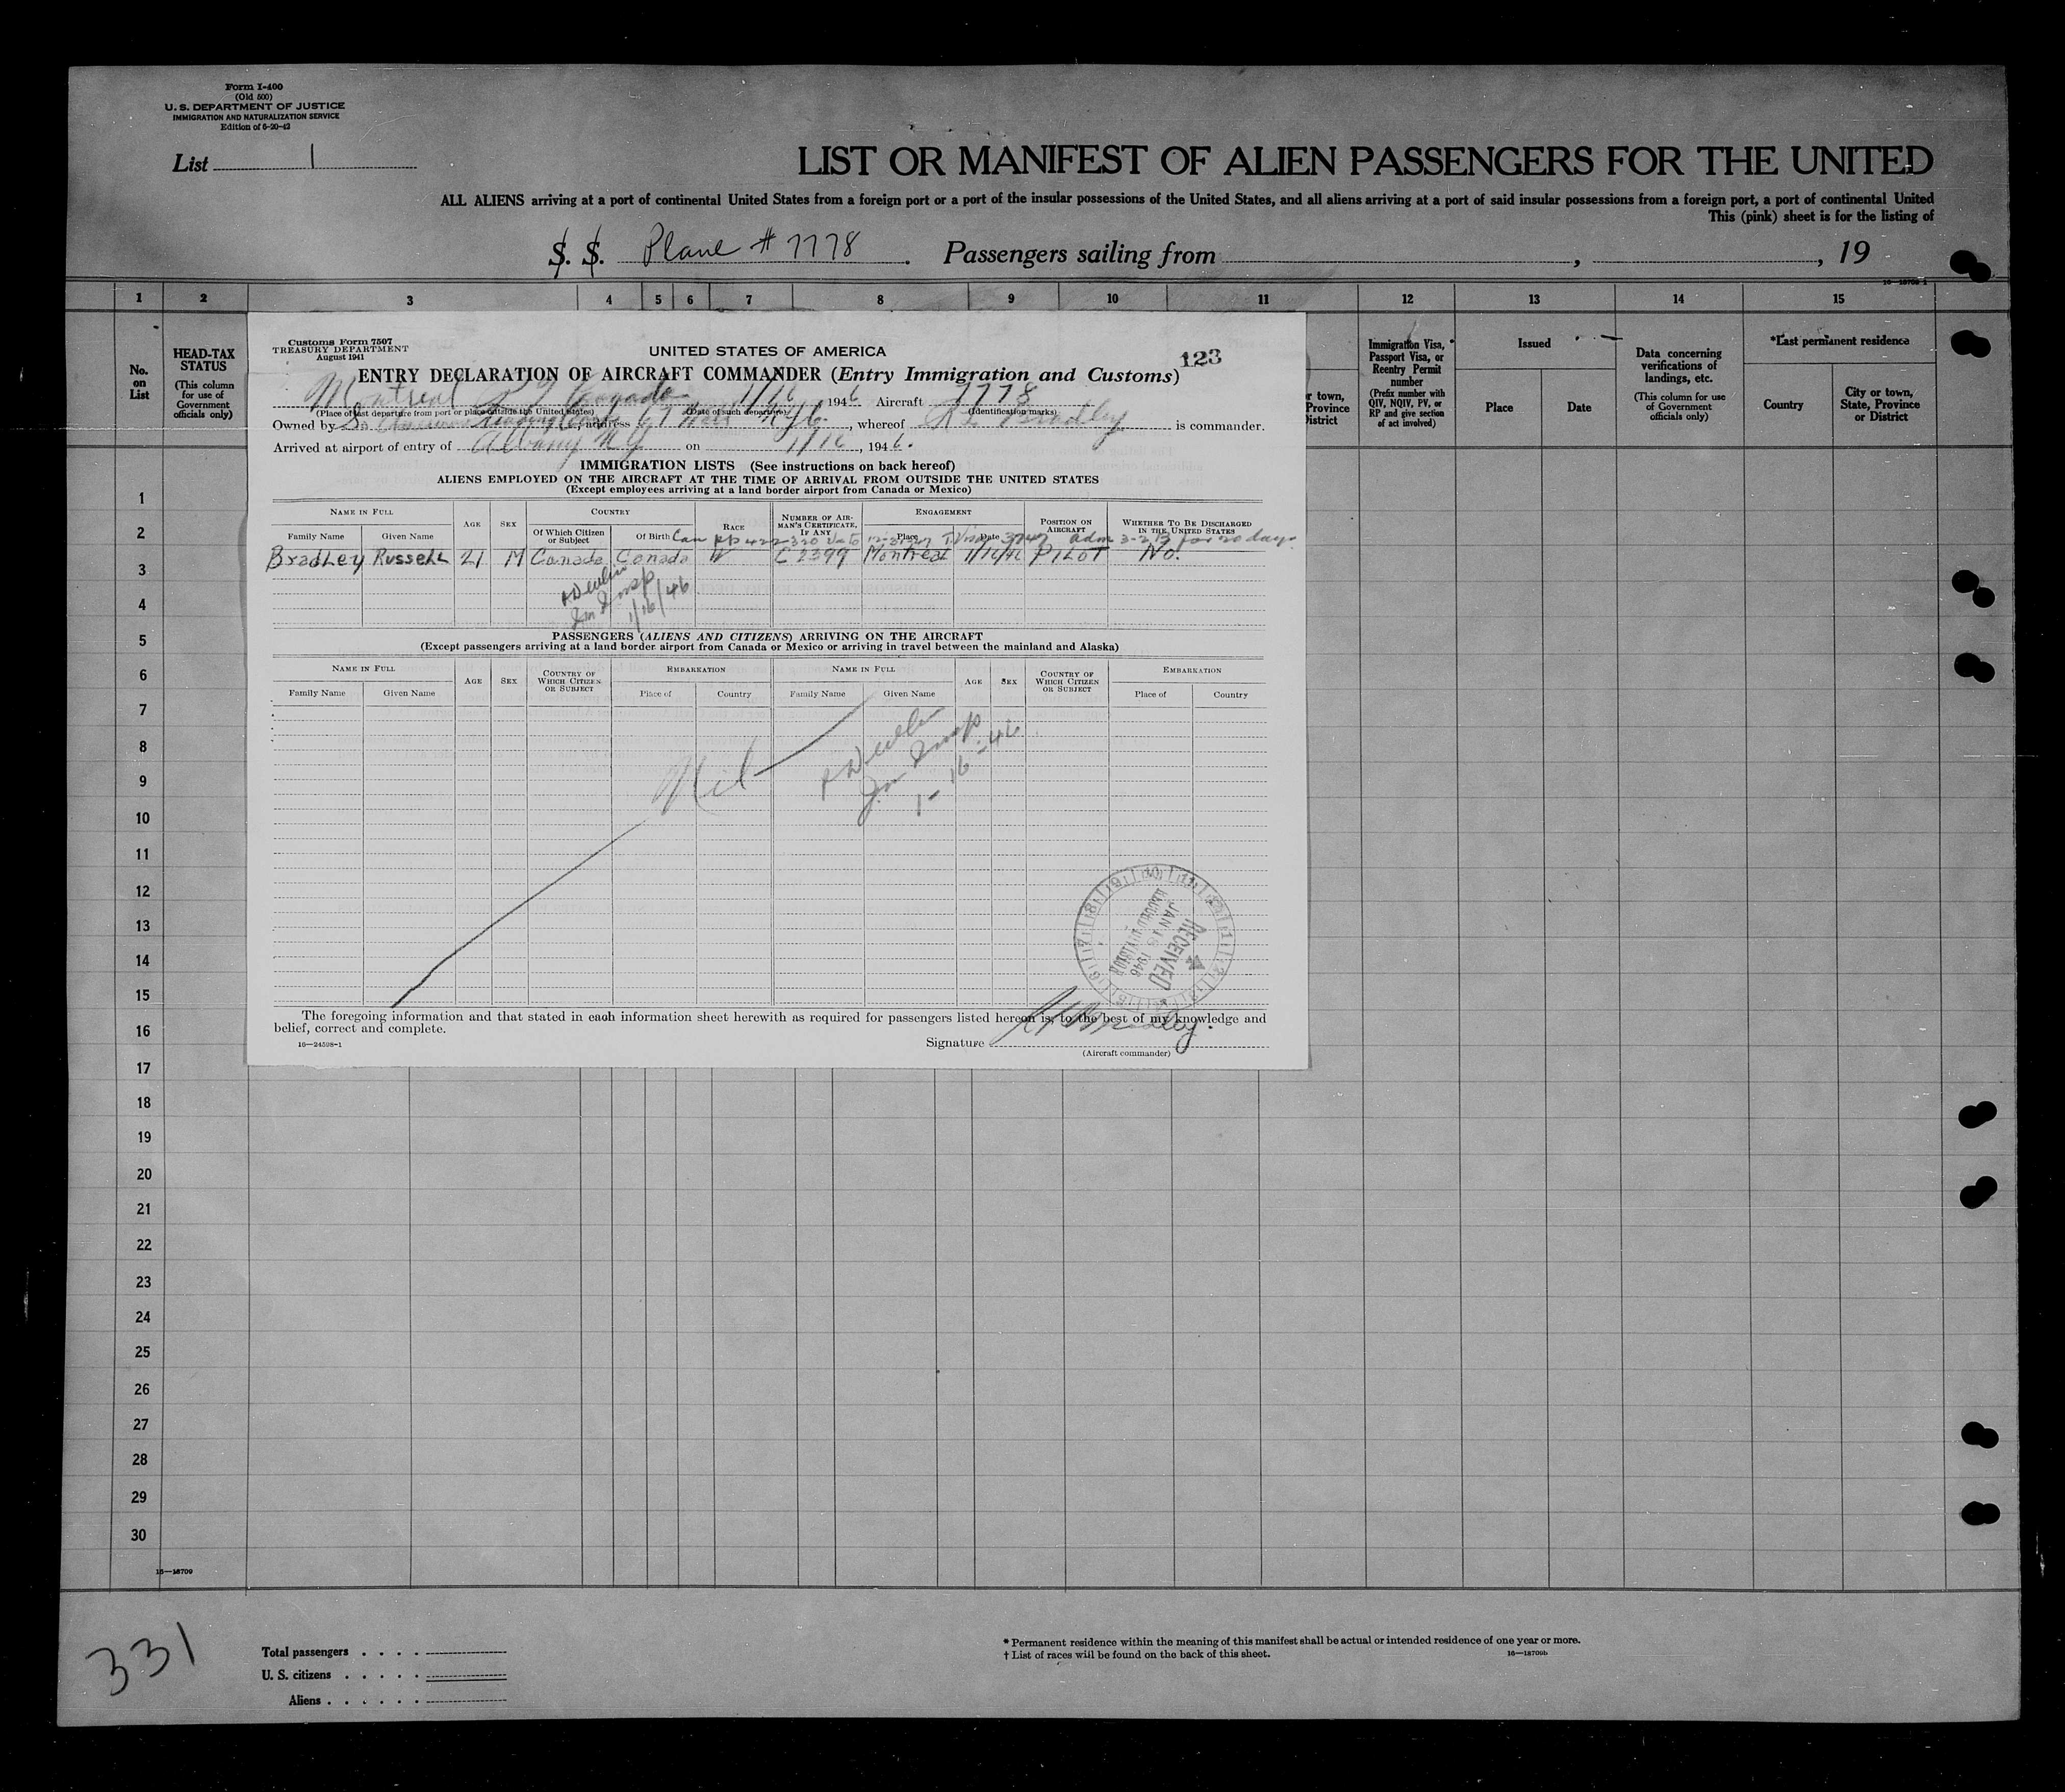 Form I-400
(Old 500)
U. S. DEPARTMENT OF JUSTICE
IMMIGRATION AND NATURALIZATION SERVICE
Edition of 6-20-42
List 1
LIST OR MANIFEST OF ALIEN PASSENGERS FOR THE UNITED
ALL ALIENS arriving at a port of continental United States from a foreign port or a port of the insular possessions of the United States, and all aliens arriving at a port of said insular possessions from a foreign port, a port of continental United
This (pink) sheet is for the listing of
S. S. Plane # 7778. Passengers sailing from , , 19
16—18709-1
1 2 3 4 5 6 7 8 9 10 11 12 13 14 15
No. on List
HEAD-TAX STATUS
(This column for use of Government officials only)
r town, Province District
Immigration Visa, Passport Visa, or Reentry Permit number
(Prefix number with QIV, NQIV, PV, or RP and give section of act involved)
Issued
Place Date
Data concerning verifications of landings, etc.
(This column for use of Government officials only)
*Last permanent residence
Country
City or town, State, Province or District
Customs Form 7507
TREASURY DEPARTMENT
August 1941
UNITED STATES OF AMERICA
123
ENTRY DECLARATION OF AIRCRAFT COMMANDER (Entry Immigration and Customs)
Montreal Canada 1/16, 1946 Aircraft 7778
(Place of last departure from port or place outside the United States) (Date of such departure) (Identification marks)
Owned by , address 67 , whereof R L Bradley is commander.
Arrived at airport of entry of Albany N Y on 1/16, 1946.
IMMIGRATION LISTS (See instructions on back hereof)
ALIENS EMPLOYED ON THE AIRCRAFT AT THE TIME OF ARRIVAL FROM OUTSIDE THE UNITED STATES
(Except employees arriving at a land border airport from Canada or Mexico)
NAME IN FULL AGE SEX COUNTRY RACE NUMBER OF AIRMAN'S CERTIFICATE, IF ANY ENGAGEMENT POSITION ON AIRCRAFT WHETHER TO BE DISCHARGED IN THE UNITED STATES
Family Name Given Name Of Which Citizen or Subject Of Birth Place Date
Can PP 422320 adm 3-2 for 20 days
Bradley Russell 21 M Canada Canada W C 2399 Montreal 1/16/46 PILOT No.
Devlin
Im Insp
1/16/46
PASSENGERS (ALIENS AND CITIZENS) ARRIVING ON THE AIRCRAFT
(Except passengers arriving at a land border airport from Canada or Mexico or arriving in travel between the mainland and Alaska)
NAME IN FULL AGE SEX COUNTRY OF WHICH CITIZEN OR SUBJECT EMBARKATION NAME IN FULL AGE SEX COUNTRY OF WHICH CITIZEN OR SUBJECT EMBARKATION
Family Name Given Name Place of Country Family Name Given Name Place of Country
Nil
Devlin
Im Insp
1-16-46
RECEIVED
JAN 16 1946
The foregoing information and that stated in each information sheet herewith as required for passengers listed hereon is, to the best of my knowledge and
belief, correct and complete.
16—24598-1
Signature R L Bradley.
(Aircraft commander)
1
2
3
4
5
6
7
8
9
10
11
12
13
14
15
16
17
18
19
20
21
22
23
24
25
26
27
28
29
30
16—18709
331
Total passengers . . . .
U. S. citizens . . . . .
Aliens . . . . . .
* Permanent residence within the meaning of this manifest shall be actual or intended residence of one year or more.
† List of races will be found on the back of this sheet.
16—18709b